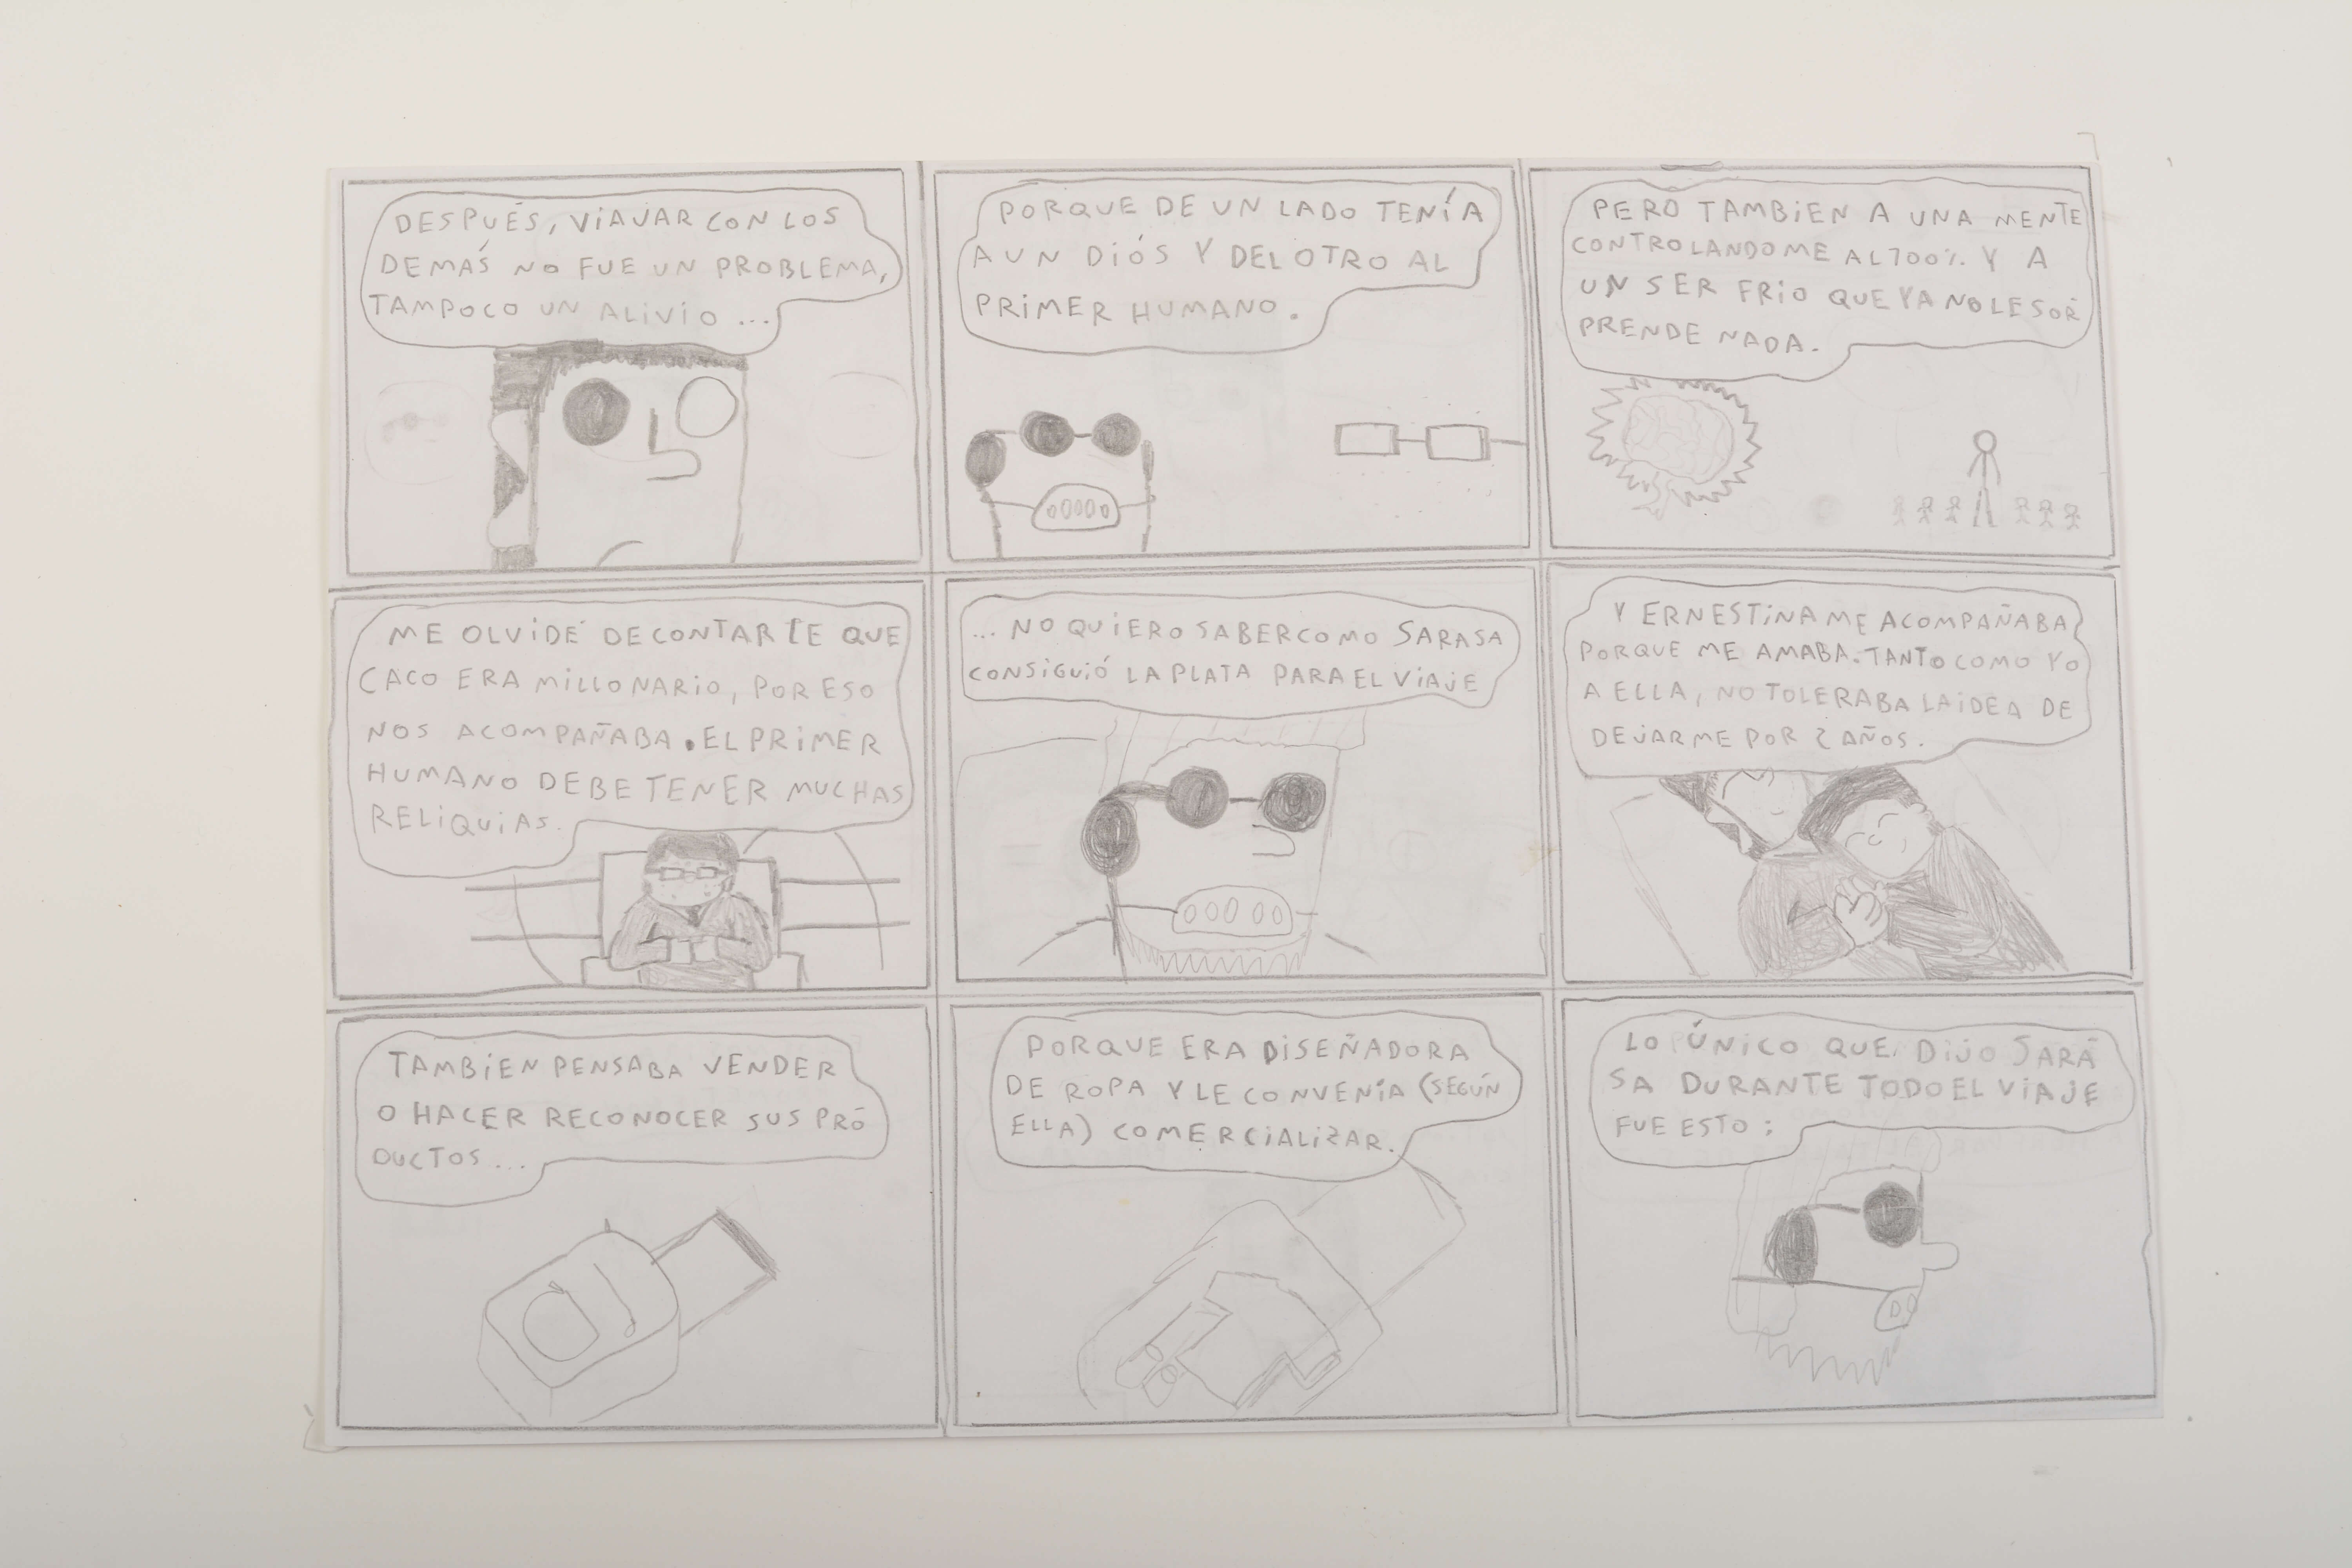 DESPUÉS, VIAJAR CON LOS
DEMÁS NO FUE UN PROBLEMA,
TAMPOCO UN ALIVIO ...
PORQUE DE UN LADO TENÍA
A UN DIÓS Y DEL OTRO AL
PRIMER HUMANO.
PERO TAMBIEN A UNA MENTE
CONTROLANDOME AL 100% Y A
UN SER FRIO QUE YA NO LE SOR
PRENDE NADA.
ME OLVIDÉ DE CONTARTE QUE
CACO ERA MILLONARIO, POR ESO
NOS ACOMPAÑABA. EL PRIMER
HUMANO DEBE TENER MUCHAS
RELIQUIAS.
... NO QUIERO SABER COMO SARASA
CONSIGUIÓ LA PLATA PARA EL VIAJE
Y ERNESTINA ME ACOMPAÑABA
PORQUE ME AMABA. TANTO COMO YO
A ELLA, NO TOLERABA LA IDEA DE
DEJARME POR 2 AÑOS.
TAMBIEN PENSABA VENDER
O HACER RECONOCER SUS PRO
DUCTOS ...
PORQUE ERA DISEÑADORA
DE ROPA Y LE CONVENÍA (SEGÚN
ELLA) COMERCIALIZAR.
LO ÚNICO QUE DIJO SARA
SA DURANTE TODO EL VIAJE
FUE ESTO: